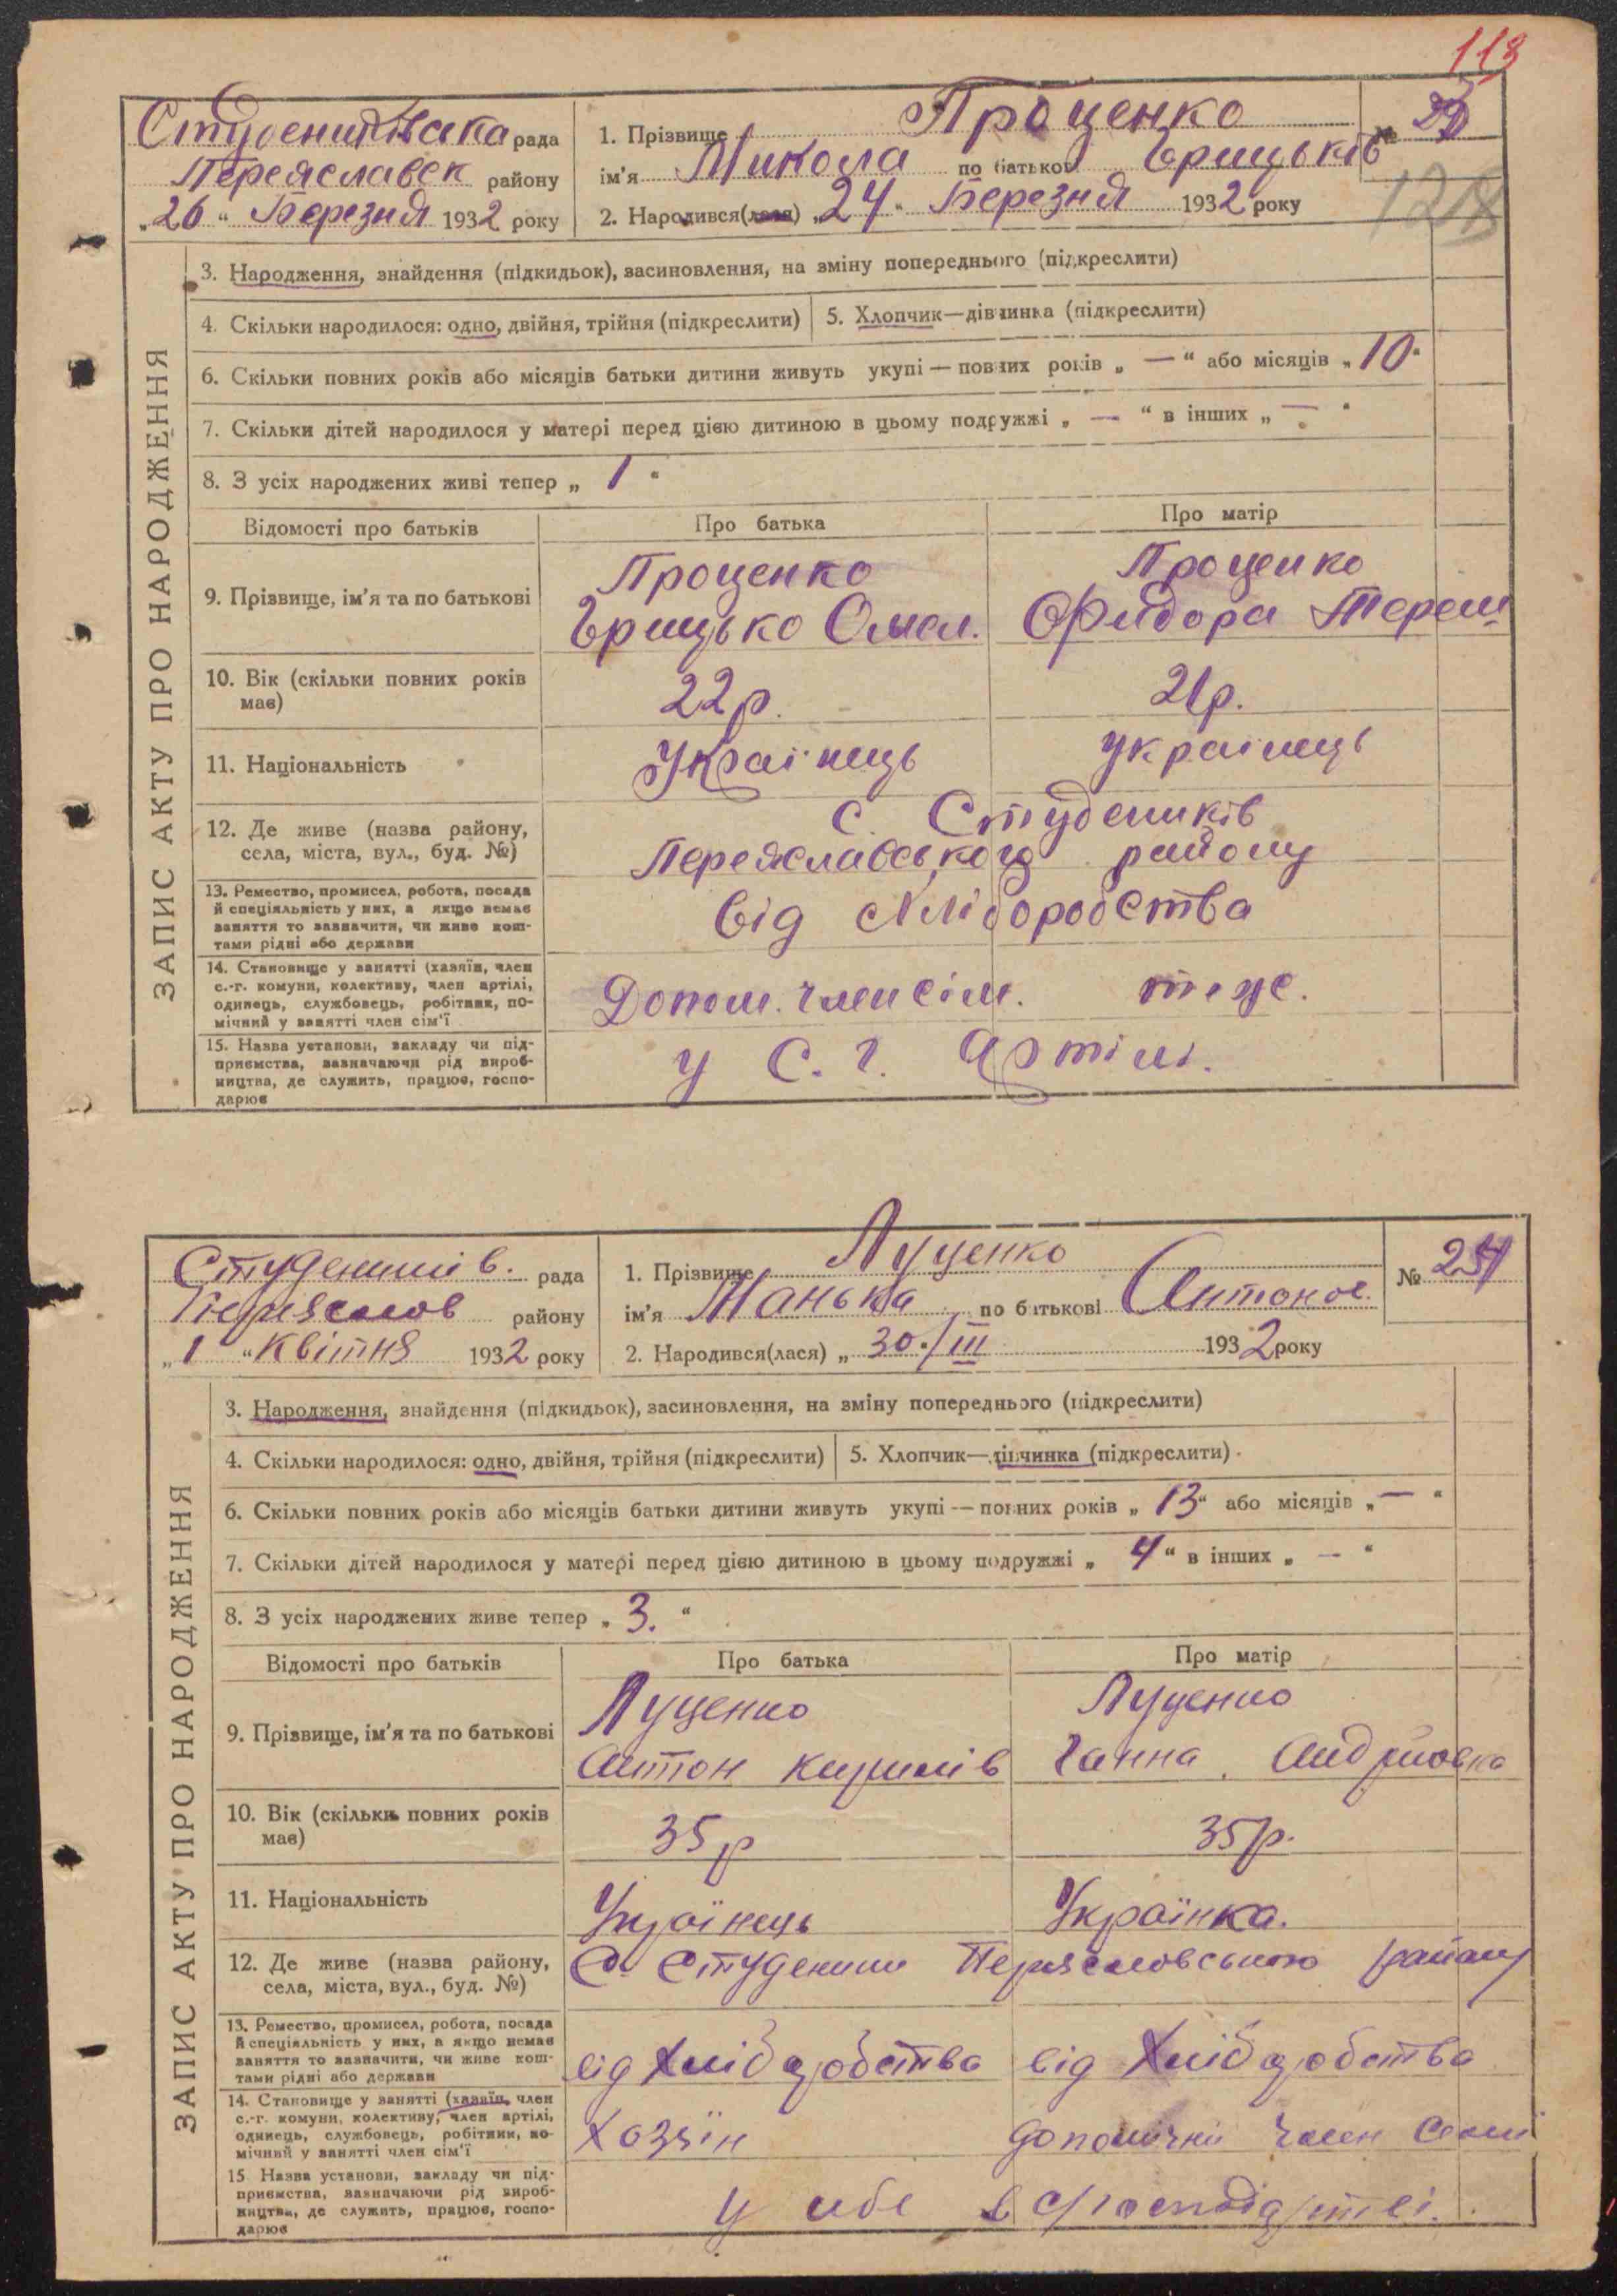 113
Студениківська рада
Переяславск району
„26“ Березня 1932 року
1. Прізвище Проценко
№
ім'я Микола по батькові Грицьків
2. Народився(лася) „24“ Березня 1932 року
ЗАПИС АКТУ ПРО НАРОДЖЕННЯ
3. Народження, знайдення (підкидьок), засиновлення, на зміну попереднього (підкреслити)
4. Скільки народилося: одно, двійня, трійня (підкреслити)
5. Хлопчик—дівчинка (підкреслити)
6. Скільки повних років або місяців батьки дитини живуть укупі — повних років „ — “ або місяців „10“
7. Скільки дітей народилося у матері перед цією дитиною в цьому подружжі „ — “ в інших „ — “
8. З усіх народжених живі тепер „ 1 “
Відомості про батьків
Про батька
Про матір
9. Прізвище, ім'я та по батькові
Проценко
Грицько Омел.
Проценко
Фидора Тереш
10. Вік (скільки повних років
має)
22р.
21р.
11. Національність
Українець
українець
12. Де живе (назва району,
села, міста, вул., буд. №)
с. Студеників
Переяславського району
13. Ремество, промисел, робота, посада
й спеціяльність у них, а якщо немає
заняття то зазначити, чи живе кош-
тами рідні або держави
від хліборобства
14. Становище у занятті (хазяїн, член
с.-г. комуни, колективу, член артілі,
одинець, службовець, робітник, по-
мічний у занятті член сім'ї
Допом. член сім.
теж.
15. Назва установи, закладу чи під-
приємства, зазначаючи рід вироб-
ництва, де служить, працює, госпо-
дарює
у С. г. артілі.
Студеників. рада
Переяслов району
„1“ Квітня 1932 року
1. Прізвище Луценко
№ 24
ім'я Манька по батькові Антонов.
2. Народився(лася) „30“/III 1932 року
ЗАПИС АКТУ ПРО НАРОДЖЕННЯ
3. Народження, знайдення (підкидьок), засиновлення, на зміну попереднього (підкреслити)
4. Скільки народилося: одно, двійня, трійня (підкреслити)
5. Хлопчик—дівчинка (підкреслити)
6. Скільки повних років або місяців батьки дитини живуть укупі — повних років „ 13 “ або місяців „ — “
7. Скільки дітей народилося у матері перед цією дитиною в цьому подружжі „ 4 “ в інших „ — “
8. З усіх народжених живе тепер „ 3. “
Відомості про батьків
Про батька
Про матір
9. Прізвище, ім'я та по батькові
Луценко
Антон Кирилів
Луценко
Ганна Андріовка
10. Вік (скільки повних років
має)
35р
35р.
11. Національність
Українець
Українка.
12. Де живе (назва району,
села, міста, вул., буд. №)
С. Студеники Переясловського району
13. Ремество, промисел, робота, посада
й спеціяльність у них, а якщо немає
заняття то зазначити, чи живе кош-
тами рідні або держави
від
від
14. Становище у занятті (хазяїн, член
с.-г. комуни, колективу, член артілі,
одинець, службовець, робітник, по-
мічний у занятті член сім'ї
Хозяїн
допомічний член семі
15 Назва установи, закладу чи під-
приємства, зазначаючи рід вироб-
ництва, де служить, працює, госпо-
дарює
у себе в